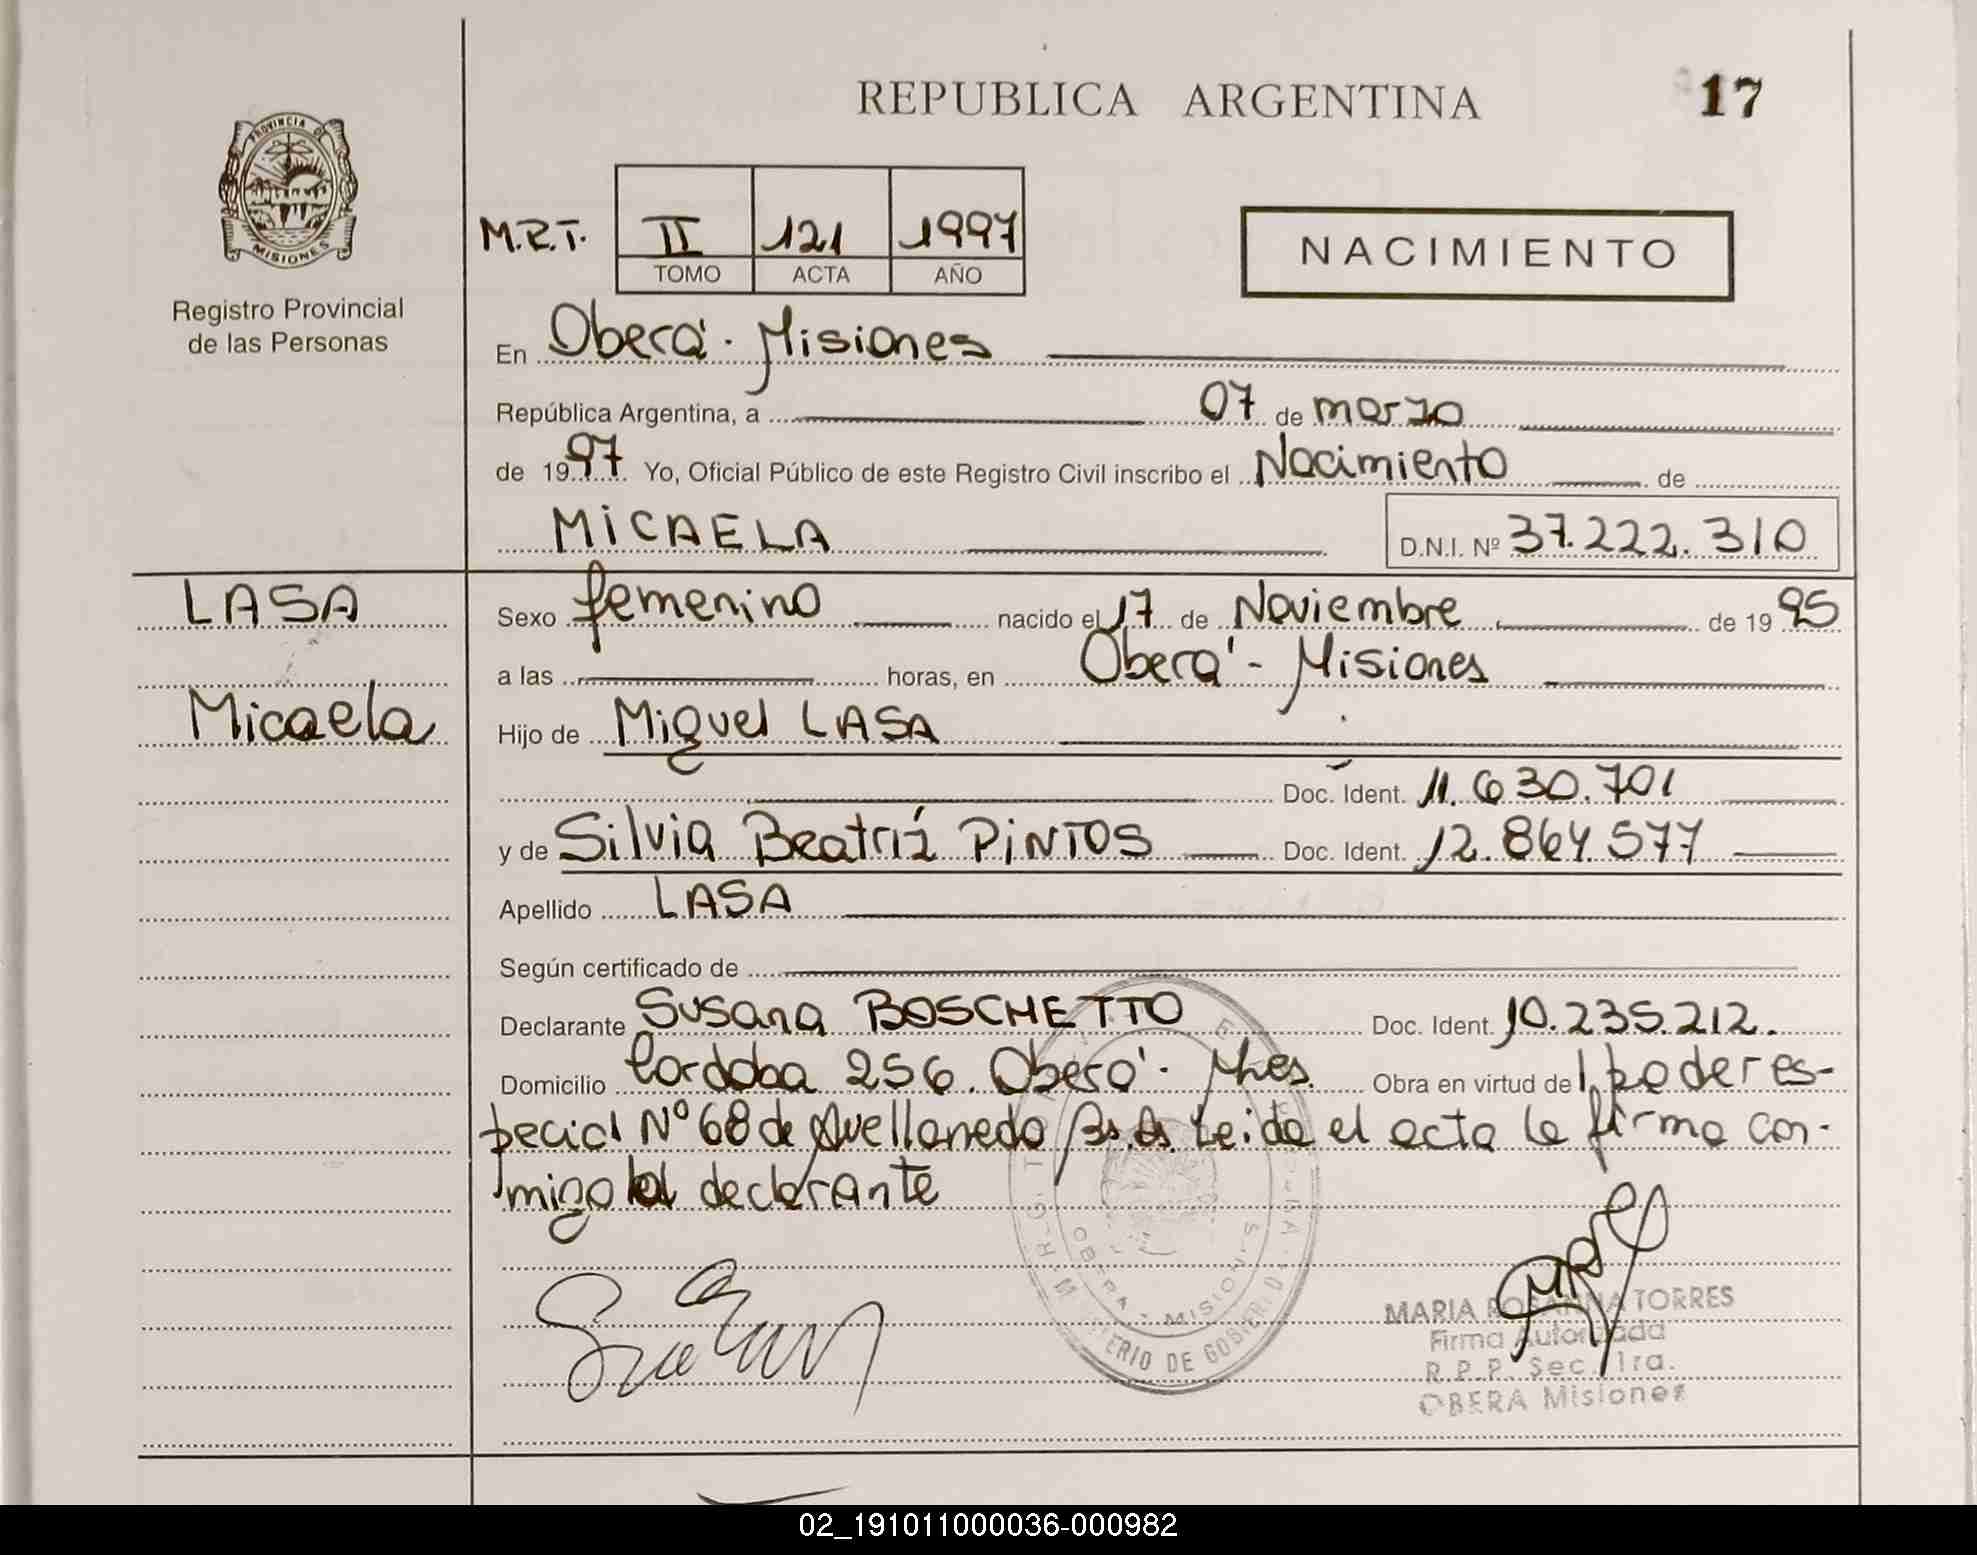 REPUBLICA ARGENTINA
17
PROVINCIA DE
MISIONES
Registro Provincial
de las Personas
M.R.T. II 121 1997
TOMO ACTA AÑO
NACIMIENTO
En Oberá - Misiones
República Argentina, a 07 de marzo
de 1997 Yo, Oficial Público de este Registro Civil inscribo el Nacimiento de
MICAELA D.N.I. Nº 37.222.310
LASA
Micaela
Sexo femenino nacido el 17 de Noviembre de 1995
a las horas, en Oberá - Misiones
Hijo de Miguel LASA
Doc. Ident. 11.630.701
y de Silvia Beatríz PINTOS Doc. Ident. 12.864.577
Apellido LASA
Según certificado de
Declarante Susana BOSCHETTO Doc. Ident. 10.235.212.
Domicilio Cordoba 256. Oberá - Mnes. Obra en virtud de poder es-
pecial Nº 68 de Avellaneda Bs.As Leida el acta la firma con-
migo el declarante
OBERA - MISIONES
MINISTERIO DE GOBIERNO
MARIA ROSANNA TORRES
Firma Autorizada
R.P.P. Sec. 1ra.
OBERA Misiones
02_191011000036-000982